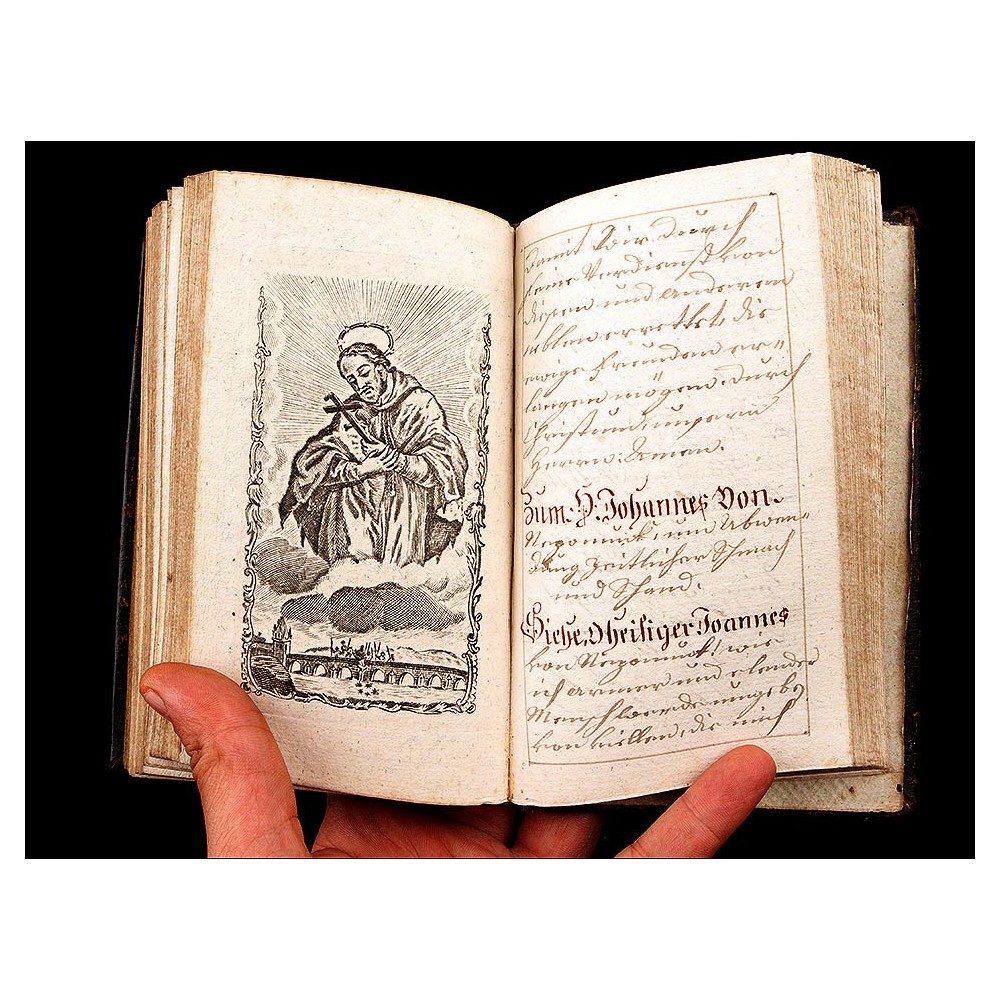 Damit Wir durch
seine Verdienst von
diesen und anderen
üblen errettet, die
ewige Freuden er=
langen mögen. durch
Christum unsern
Herrn. Amen.
Zum H. Johannes Von
Nepomuck, um Abwen-
dung zeitlicher Schmach
und Schand.
Siehe, O heiliger Joannes
von Nepomuck! wie
ich armer und elender
Mensch werde umgeben
von viellen, die mich